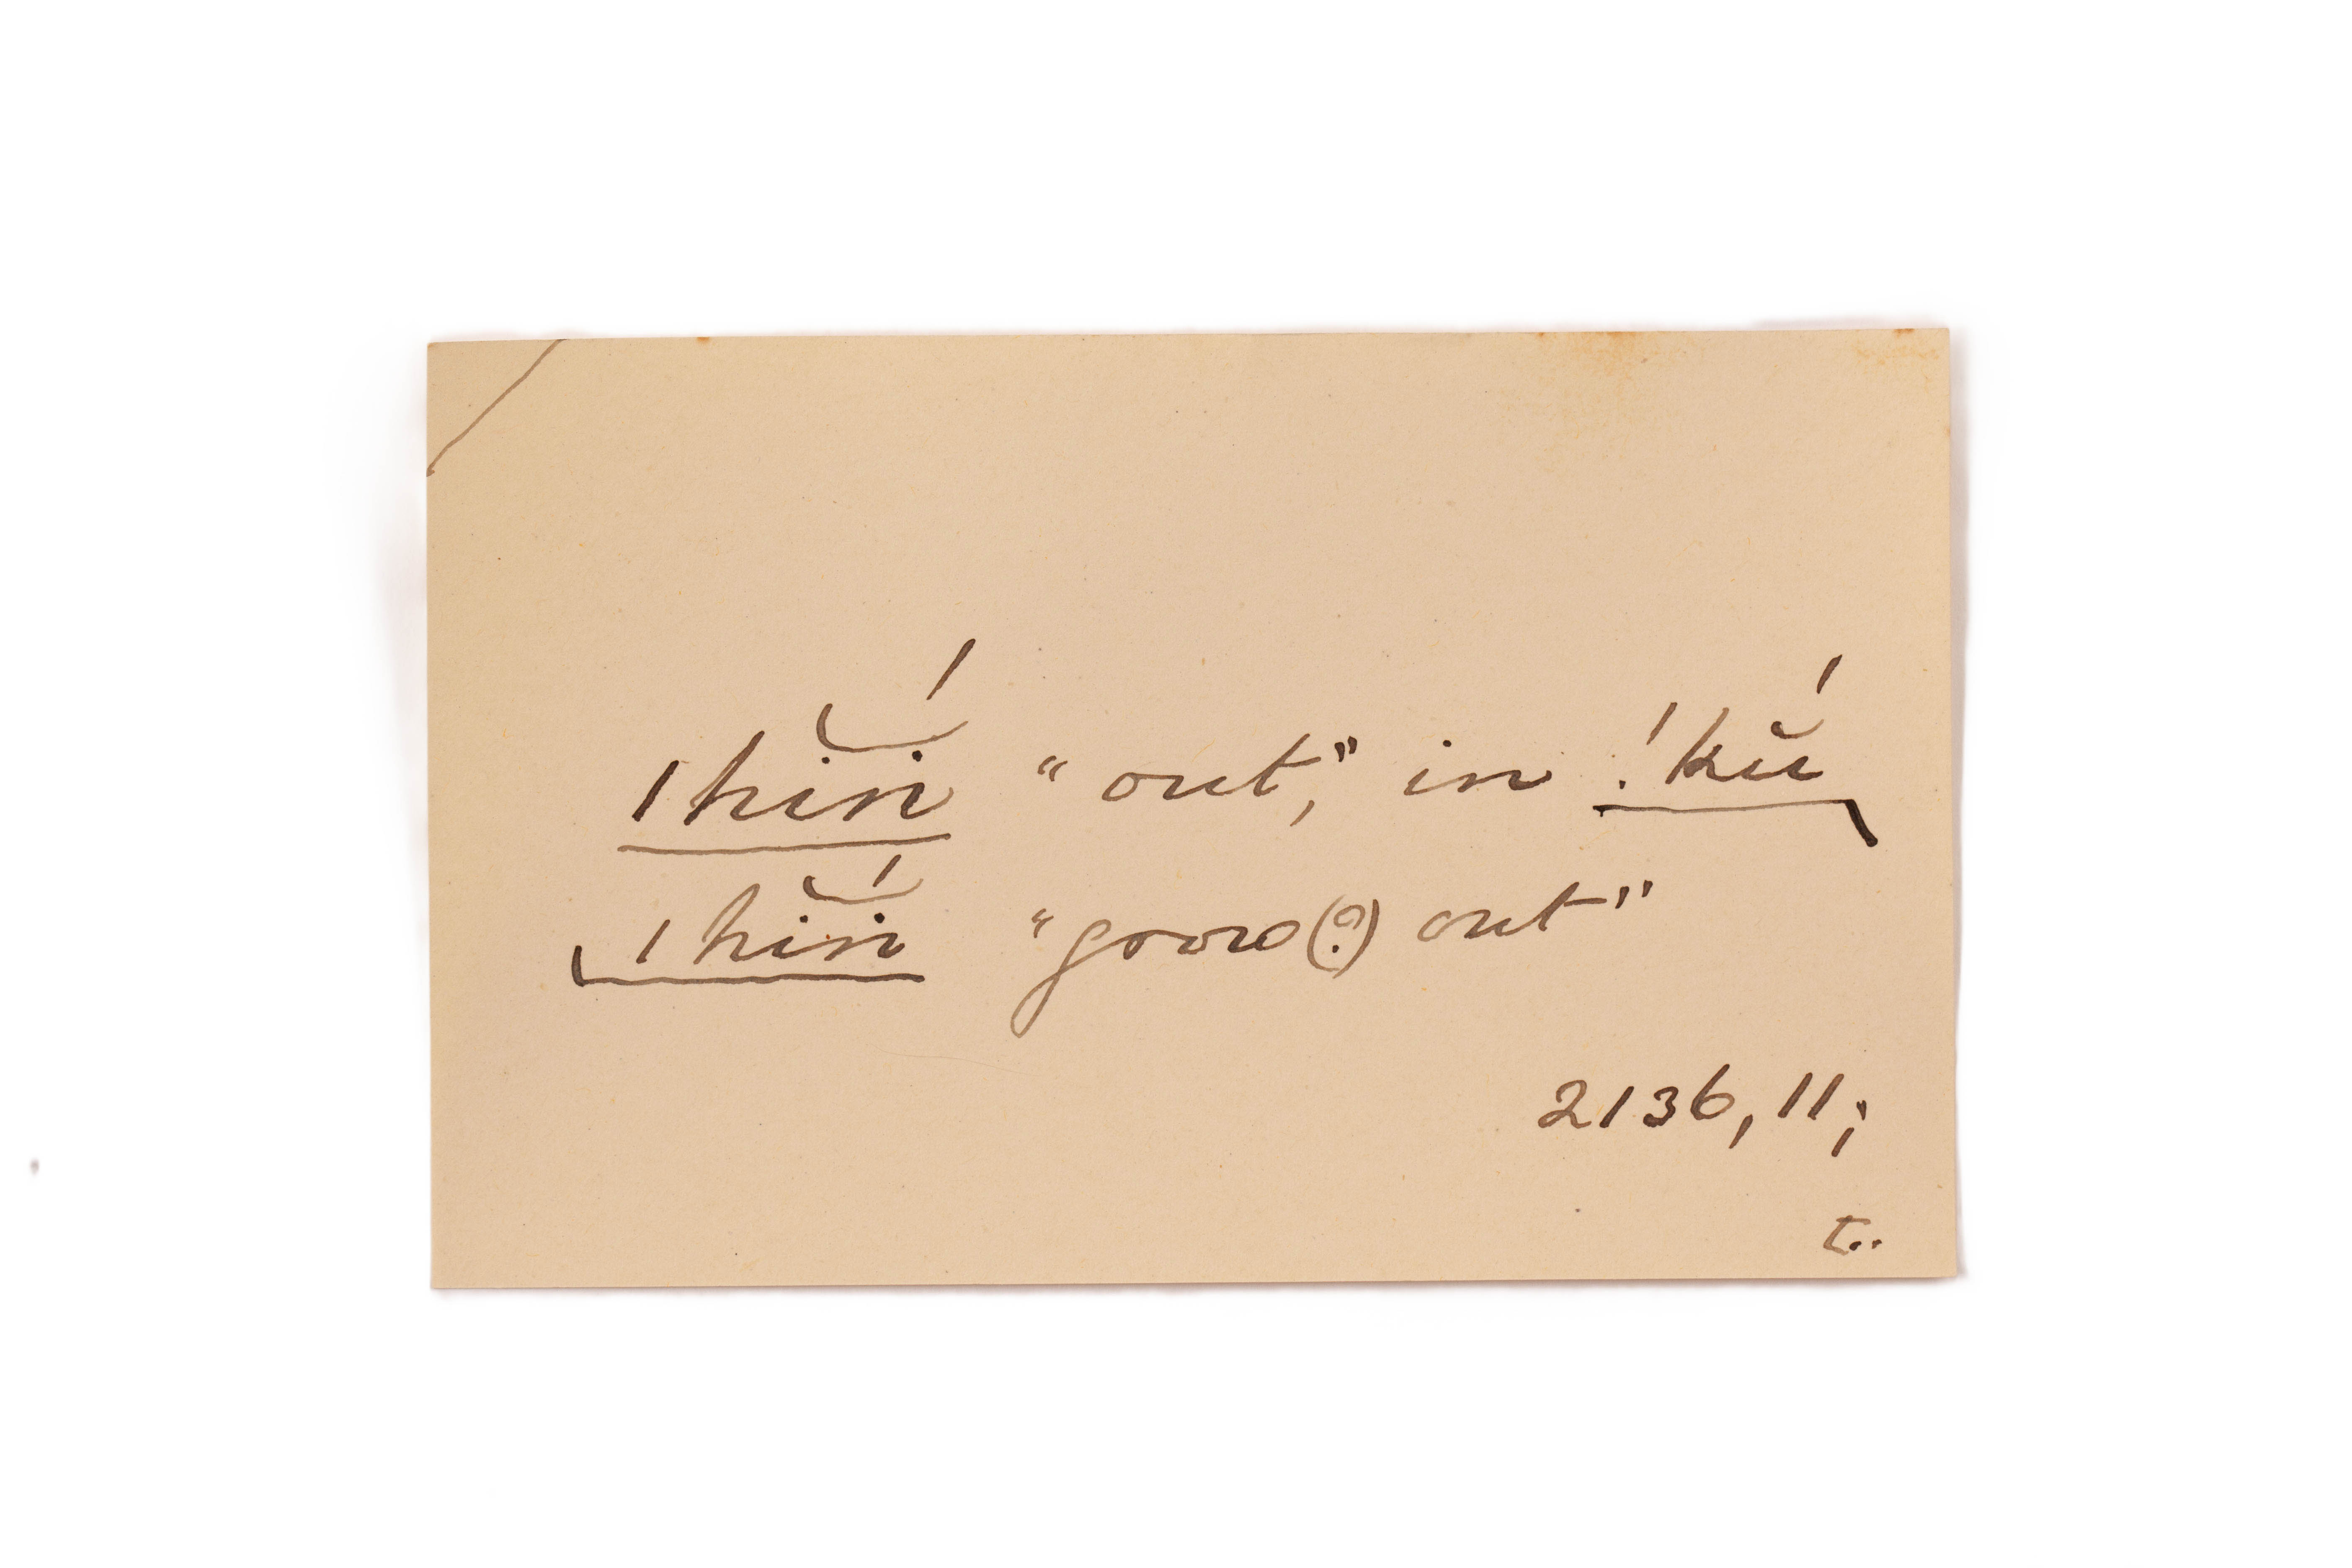 |hĭṅ́ "out," in !kŭ́
|hĭṅ́ "grow(?) out"
2136, 11;
t..